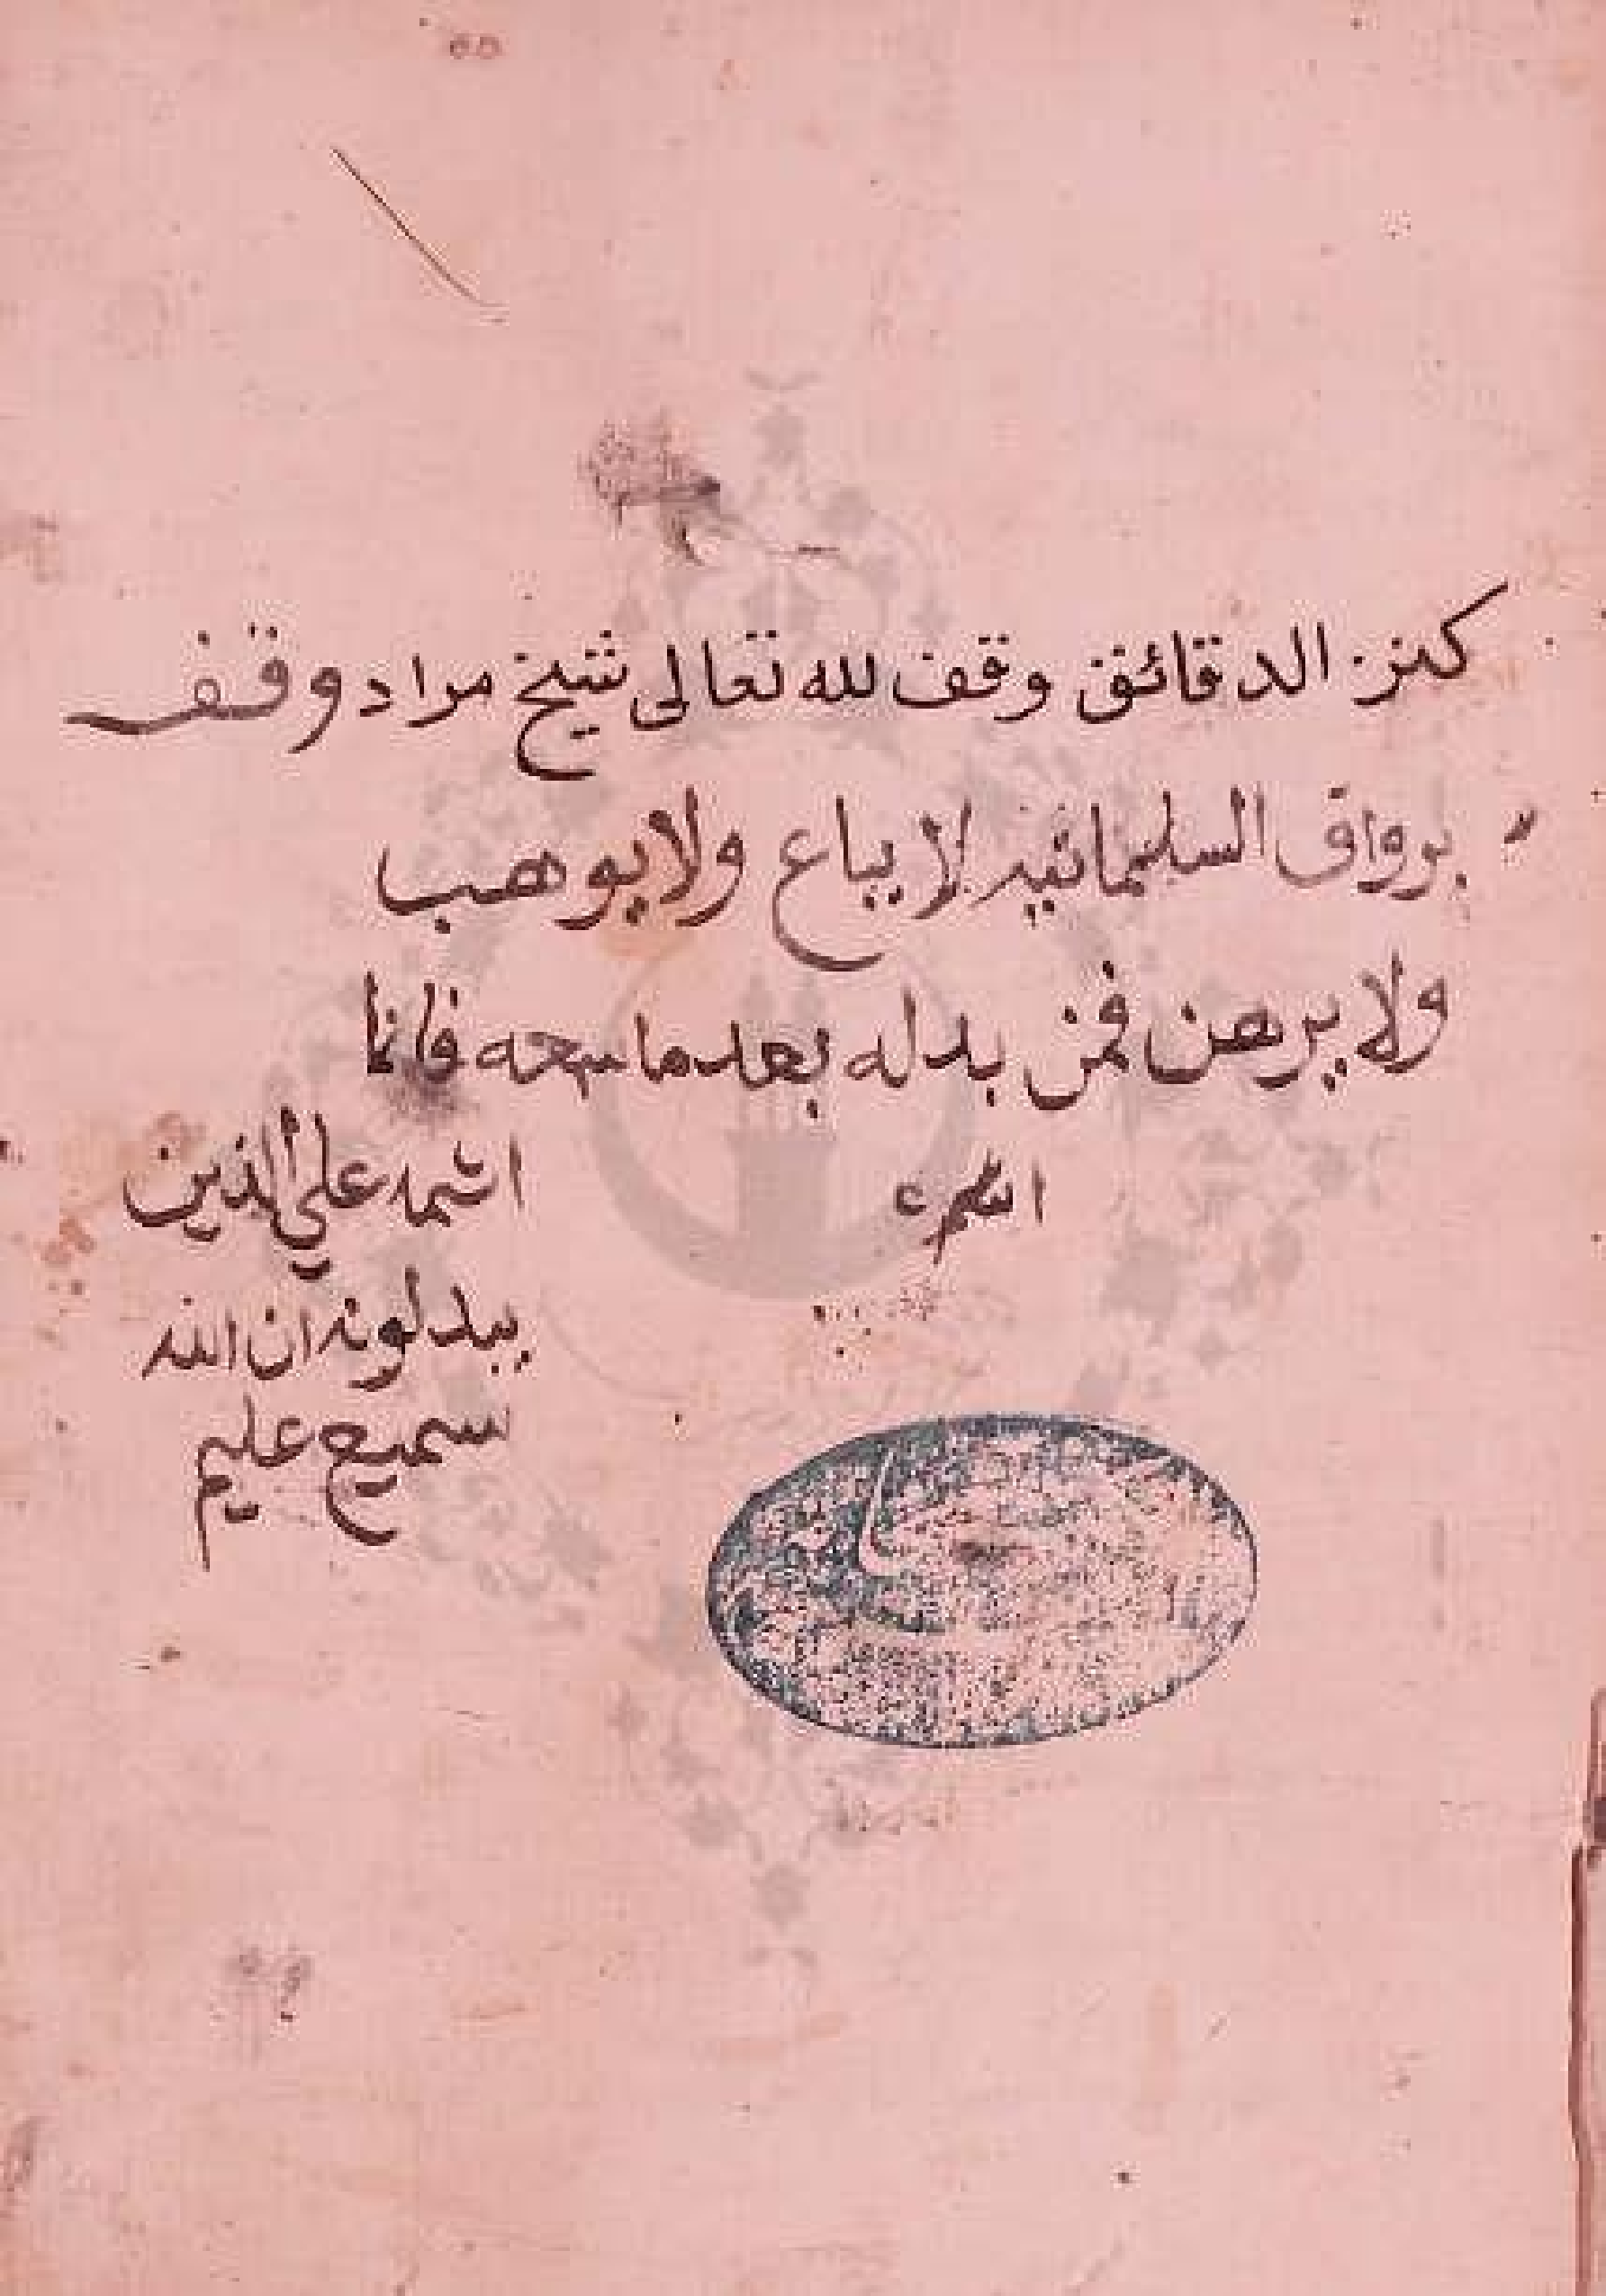 كنز الدقائق وقف لله تعالى شيخ مراد وقف
برواق السليمانيه لا يباع ولا يوهب
ولا يرهن فمن بدله بعد ما سمعه فانما
اثمه على الذين
يبدلونه ان الله
سميع عليم